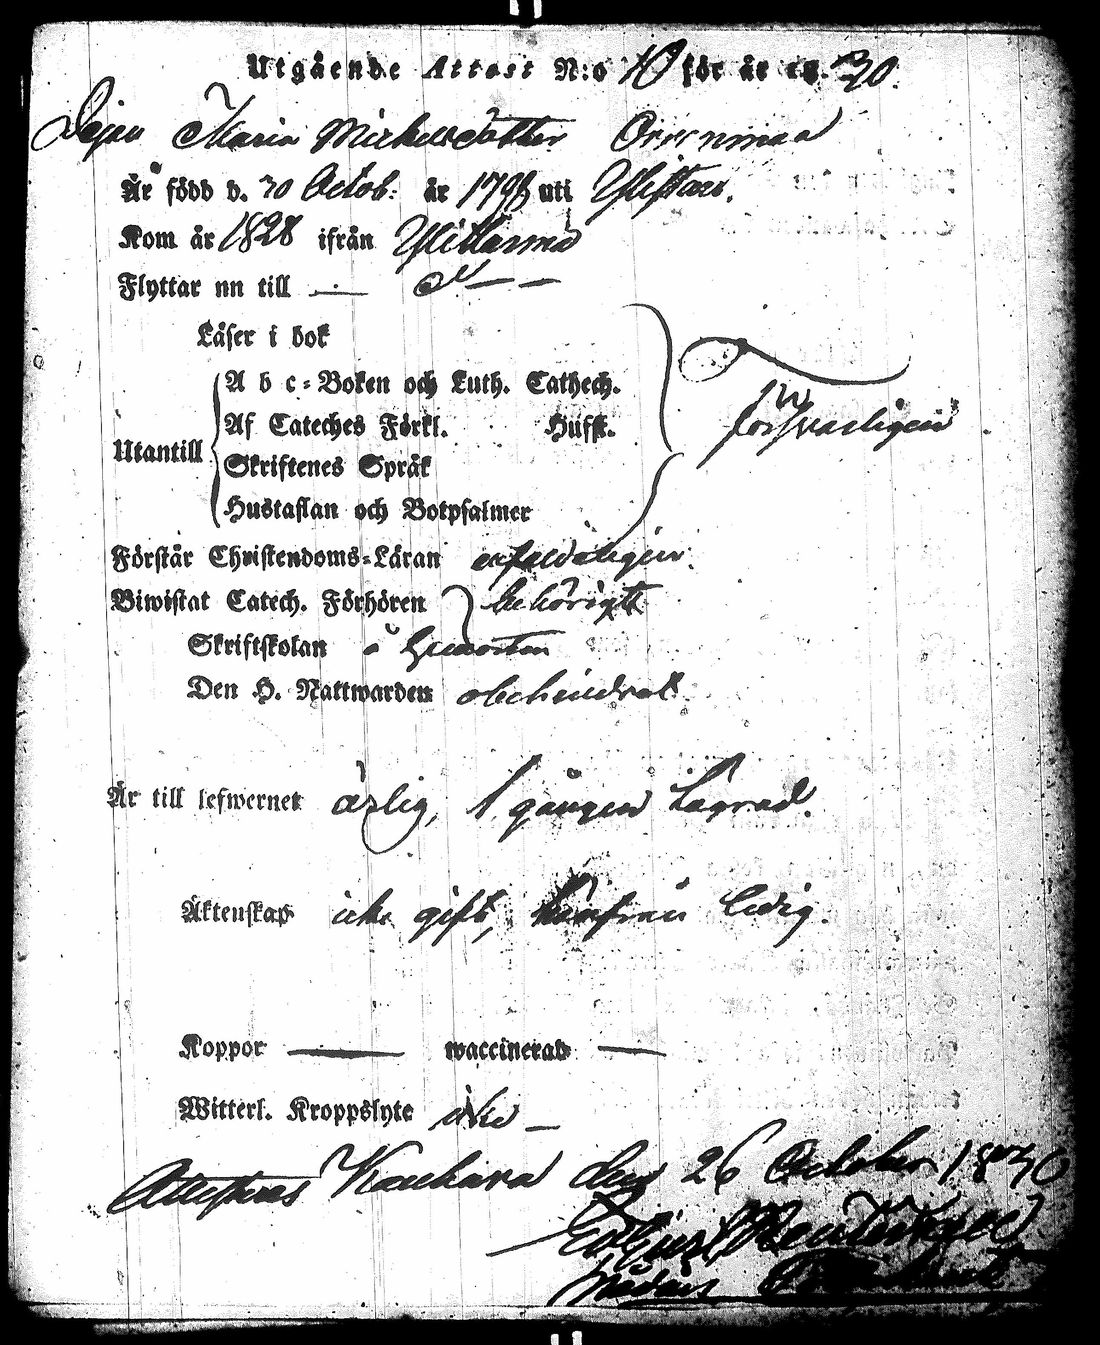 Utgående Attest N:o 10 för år 18 30.
Pigan Maria Michelsdotter
Är född d. 30 Octob: år 1798 uti Ylistaro.
Kom år 1828 ifrån Ylihärmä
Flyttar nu till — — —
Läser i bok
A b c-Boken och Luth. Cathech.
Af Cateches Förkl. Husfl.
försvarligen
Utantill
Skriftenes Språk
Hustaflan och Botpsalmer
Förstår Christendoms-Läran enfaldeligen.
Biwistat Catech. Förhören behörigt
Skriftskolan å
Den H. Nattwarden obehindrat
Är till lefwernet ärlig, 1 gången lägrad.
Äktenskap icke gift, härifrån ledig.
Koppor — waccinerad —
Witterl. Kroppslyte icke —
Attesteras Kauhava den 26 October 1830